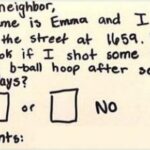 neighbor,
me is Emma and I
the street at 1659.
ok if I shot some
b-ball hoop after s
ays?
or NO
nts: